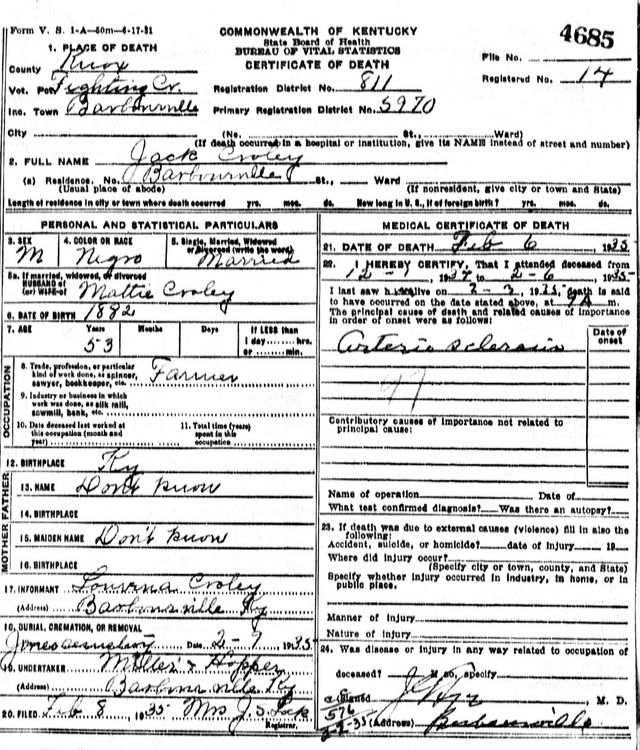 Form V. S. 1-A—50m—6-17-31
COMMONWEALTH OF KENTUCKY
State Board of Health
BUREAU OF VITAL STATISTICS
CERTIFICATE OF DEATH
4685
File No.
Registered No. 14
1. PLACE OF DEATH
County Knox
Vot. Pct. Fighting Cr.
Inc. Town Barbourville
Registration District No. 811
Primary Registration District No. 5970
City (No. St., Ward)
(If death occurred in a hospital or institution, give its NAME instead of street and number)
2. FULL NAME Jack Croley
(a) Residence. No. Barbourville St., Ward
(Usual place of abode) (If nonresident, give city or town and State)
Length of residence in city or town where death occurred yrs. mos. ds. How long in U. S., if of foreign birth? yrs. mos. ds.
PERSONAL AND STATISTICAL PARTICULARS
3. SEX M
4. COLOR OR RACE Negro
5. Single, Married, Widowed or Divorced (write the word) Married
5a. If married, widowed, or divorced
HUSBAND of (or) WIFE of Mattie Croley
6. DATE OF BIRTH 1882
7. AGE Years Months Days If LESS than
53 1 day hrs.
or min.
OCCUPATION
8. Trade, profession, or particular kind of work done, as spinner, sawyer, bookkeeper, etc. Farmer
9. Industry or business in which work was done, as silk mill, sawmill, bank, etc.
10. Date deceased last worked at this occupation (month and year)
11. Total time (years) spent in this occupation
12. BIRTHPLACE Ky
FATHER
13. NAME Don't know
14. BIRTHPLACE
MOTHER
15. MAIDEN NAME Don't know
16. BIRTHPLACE
17. INFORMANT Louvina Croley
(Address) Barbourville Ky
18. BURIAL, CREMATION, OR REMOVAL
Jones cemetery Date 2-7 1935
19. UNDERTAKER Miller & Hopper
(Address) Barbourville Ky
20. FILED Feb 8, 1935 Mrs J. S.
Registrar.
MEDICAL CERTIFICATE OF DEATH
21. DATE OF DEATH Feb 6, 1935
22. I HEREBY CERTIFY, That I attended deceased from
12- 193 to 2-6, 1935
I last saw h alive on 2-3, 1935, death is said
to have occurred on the date stated above, at m.
The principal cause of death and related causes of importance
in order of onset were as follows:
Date of onset
Arterio sclerosis
97
Contributory causes of importance not related to
principal cause:
Name of operation Date of
What test confirmed diagnosis? Was there an autopsy?
23. If death was due to external causes (violence) fill in also the
following:
Accident, suicide, or homicide? date of injury 19
Where did injury occur?
(Specify city or town, county, and State)
Specify whether injury occurred in industry, in home, or in
public place.
Manner of injury
Nature of injury
24. Was disease or injury in any way related to occupation of
deceased? If so, specify
Signed M. D.
576
(Address) Barbourville